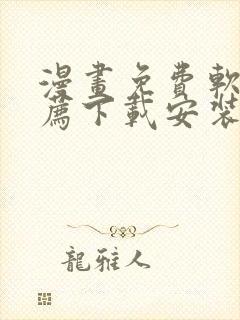 漫畫免費軟
薦下載安裝
龍雅人